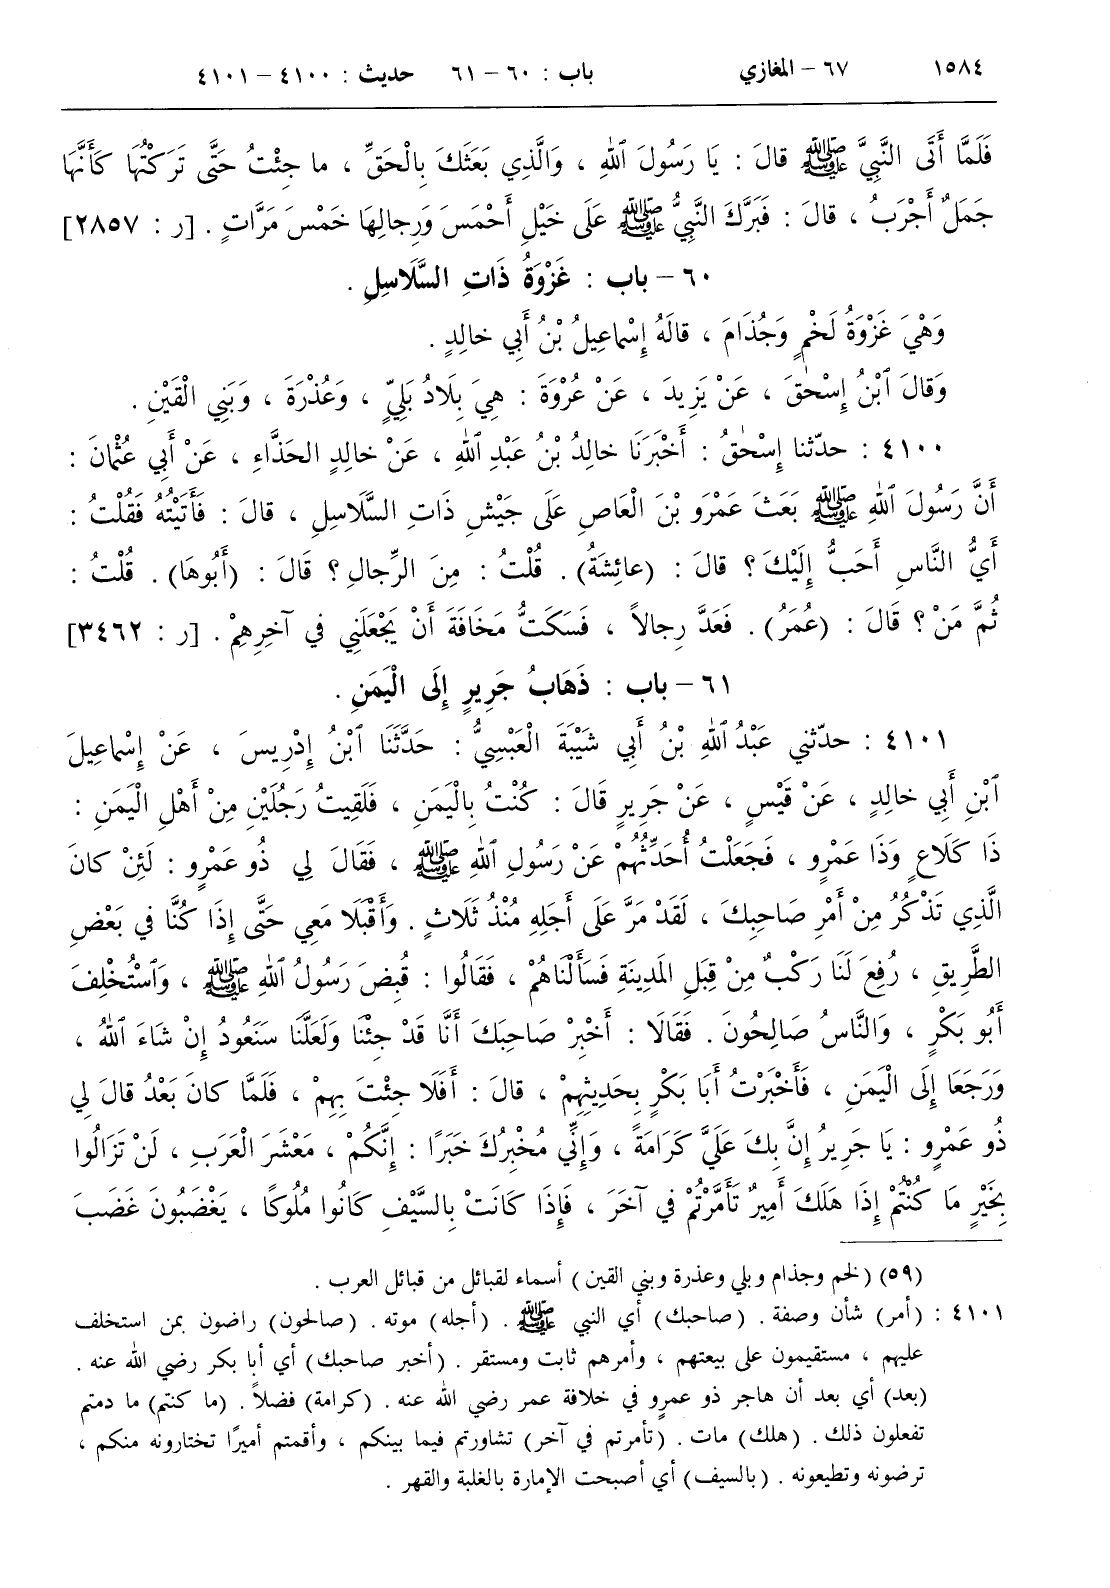 ١٥٨٤ ٦٧ - المغازي باب : ٦٠ - ٦١ حديث : ٤١٠٠ - ٤١٠١
فَلَمَّا أَتَى النَّبِيَّ ﷺ قالَ : يَا رَسُولَ ٱللهِ ، وَالَّذِي بَعَثَكَ بِالْحَقِّ ، ما جِئْتُ حَتَّى تَرَكْتُهَا كَأَنَّهَا
جَمَلٌ أَجْرَبُ ، قالَ : فَبَرَّكَ النَّبِيُّ ﷺ عَلَى خَيْلِ أَحْمَسَ وَرِجالِهَا خَمْسَ مَرَّاتٍ . [ر : ٢٨٥٧]
٦٠ - باب : غَزْوَةُ ذَاتِ السَّلَاسِلِ .
وَهْيَ غَزْوَةُ لَخْمٍ وَجُذَامَ ، قالَهُ إِسْماعِيلُ بْنُ أَبِي خالِدٍ .
وَقالَ ٱبْنُ إِسْحٰقَ ، عَنْ يَزِيدَ ، عَنْ عُرْوَةَ : هِيَ بِلَادُ بَلِيٍّ ، وَعُذْرَةَ ، وَبَنِي الْقَيْنِ .
٤١٠٠ : حدّثنا إِسْحٰقُ : أَخْبَرَنَا خالِدُ بْنُ عَبْدِ ٱللهِ ، عَنْ خالِدٍ الحَذَّاءِ ، عَنْ أَبِي عُثْمَانَ :
أَنَّ رَسُولَ ٱللهِ ﷺ بَعَثَ عَمْرَو بْنَ الْعَاصِ عَلَى جَيْشِ ذَاتِ السَّلَاسِلِ ، قالَ : فَأَتَيْتُهُ فَقُلْتُ :
أَيُّ النَّاسِ أَحَبُّ إِلَيْكَ ؟ قالَ : (عائِشَةُ) . قُلْتُ : مِنَ الرِّجالِ ؟ قَالَ : (أَبُوهَا) . قُلْتُ :
ثُمَّ مَنْ ؟ قَالَ : (عُمَرُ) . فَعَدَّ رِجالاً ، فَسَكَتُّ مَخَافَةَ أَنْ يَجْعَلَنِي في آخِرِهِمْ . [ر : ٣٤٦٢]
٦١ - باب : ذَهَابُ جَرِيرٍ إِلَى الْيَمَنِ .
٤١٠١ : حدّثني عَبْدُ ٱللهِ بْنُ أَبِي شَيْبَةَ الْعَبْسِيُّ : حَدَّثَنَا ٱبْنُ إِدْرِيسَ ، عَنْ إِسْماعِيلَ
ٱبْنِ أَبِي خالِدٍ ، عَنْ قَيْسٍ ، عَنْ جَرِيرٍ قَالَ : كُنْتُ بِالْيَمَنِ ، فَلَقِيتُ رَجُلَيْنِ مِنْ أَهْلِ الْيَمَنِ :
ذَا كَلَاعٍ وَذَا عَمْرٍو ، فَجَعَلْتُ أُحَدِّثُهُمْ عَنْ رَسُولِ ٱللهِ ﷺ ، فَقَالَ لِي ذُو عَمْرٍو : لَئِنْ كانَ
الَّذِي تَذْكُرُ مِنْ أَمْرِ صَاحِبِكَ ، لَقَدْ مَرَّ عَلَى أَجَلِهِ مُنْذُ ثَلَاثٍ . وَأَقْبَلَا مَعِي حَتَّى إِذَا كُنَّا في بَعْضِ
الطَّرِيقِ ، رُفِعَ لَنَا رَكْبٌ مِنْ قِبَلِ المَدِينَةِ فَسَأَلْنَاهُمْ ، فَقَالُوا : قُبِضَ رَسُولُ ٱللهِ ﷺ ، وَٱسْتُخْلِفَ
أَبُو بَكْرٍ ، وَالنَّاسُ صَالِحُونَ . فَقَالَا : أَخْبِرْ صَاحِبَكَ أَنَّا قَدْ جِئْنَا وَلَعَلَّنَا سَنَعُودُ إِنْ شَاءَ ٱللهُ ،
وَرَجَعَا إِلَى الْيَمَنِ ، فَأَخْبَرْتُ أَبَا بَكْرٍ بِحَدِيثِهِمْ ، قالَ : أَفَلَا جِئْتَ بِهِمْ ، فَلَمَّا كانَ بَعْدُ قالَ لِي
ذُو عَمْرٍو : يَا جَرِيرُ إِنَّ بِكَ عَلَيَّ كَرَامَةً ، وَإِنِّي مُخْبِرُكَ خَبَرًا : إِنَّكُمْ ، مَعْشَرَ الْعَرَبِ ، لَنْ تَزَالُوا
بِخَيْرٍ مَا كُنْتُمْ إِذَا هَلَكَ أَمِيرٌ تَأَمَّرْتُمْ في آخَرَ ، فَإِذَا كَانَتْ بِالسَّيْفِ كَانُوا مُلُوكًا ، يَغْضَبُونَ غَضَبَ
(٥٩) (لخم وجذام وبلي وعذرة وبني القين) أسماء لقبائل من قبائل العرب .
٤١٠١ : (أمر) شأن وصفة . (صاحبك) أي النبي ﷺ . (أجله) موته . (صالحون) راضون بمن استخلف
عليهم ، مستقيمون على بيعتهم ، وأمرهم ثابت ومستقر . (أخبر صاحبك) أي أبا بكر رضي الله عنه .
(بعد) أي بعد أن هاجر ذو عمرو في خلافة عمر رضي الله عنه . (كرامة) فضلاً . (ما كنتم) ما دمتم
تفعلون ذلك . (هلك) مات . (تأمرتم في آخر) تشاورتم فيما بينكم ، وأقمتم أميرًا تختارونه منكم ،
ترضونه وتطيعونه . (بالسيف) أي أصبحت الإمارة بالغلبة والقهر .